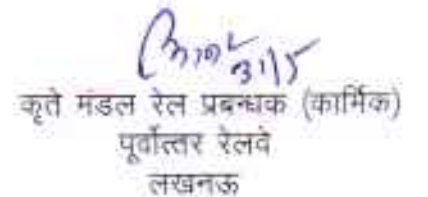 कृते मंडल रेल प्रबन्धक (कार्मिक)
पूर्वोत्तर रेलवे
लखनऊ